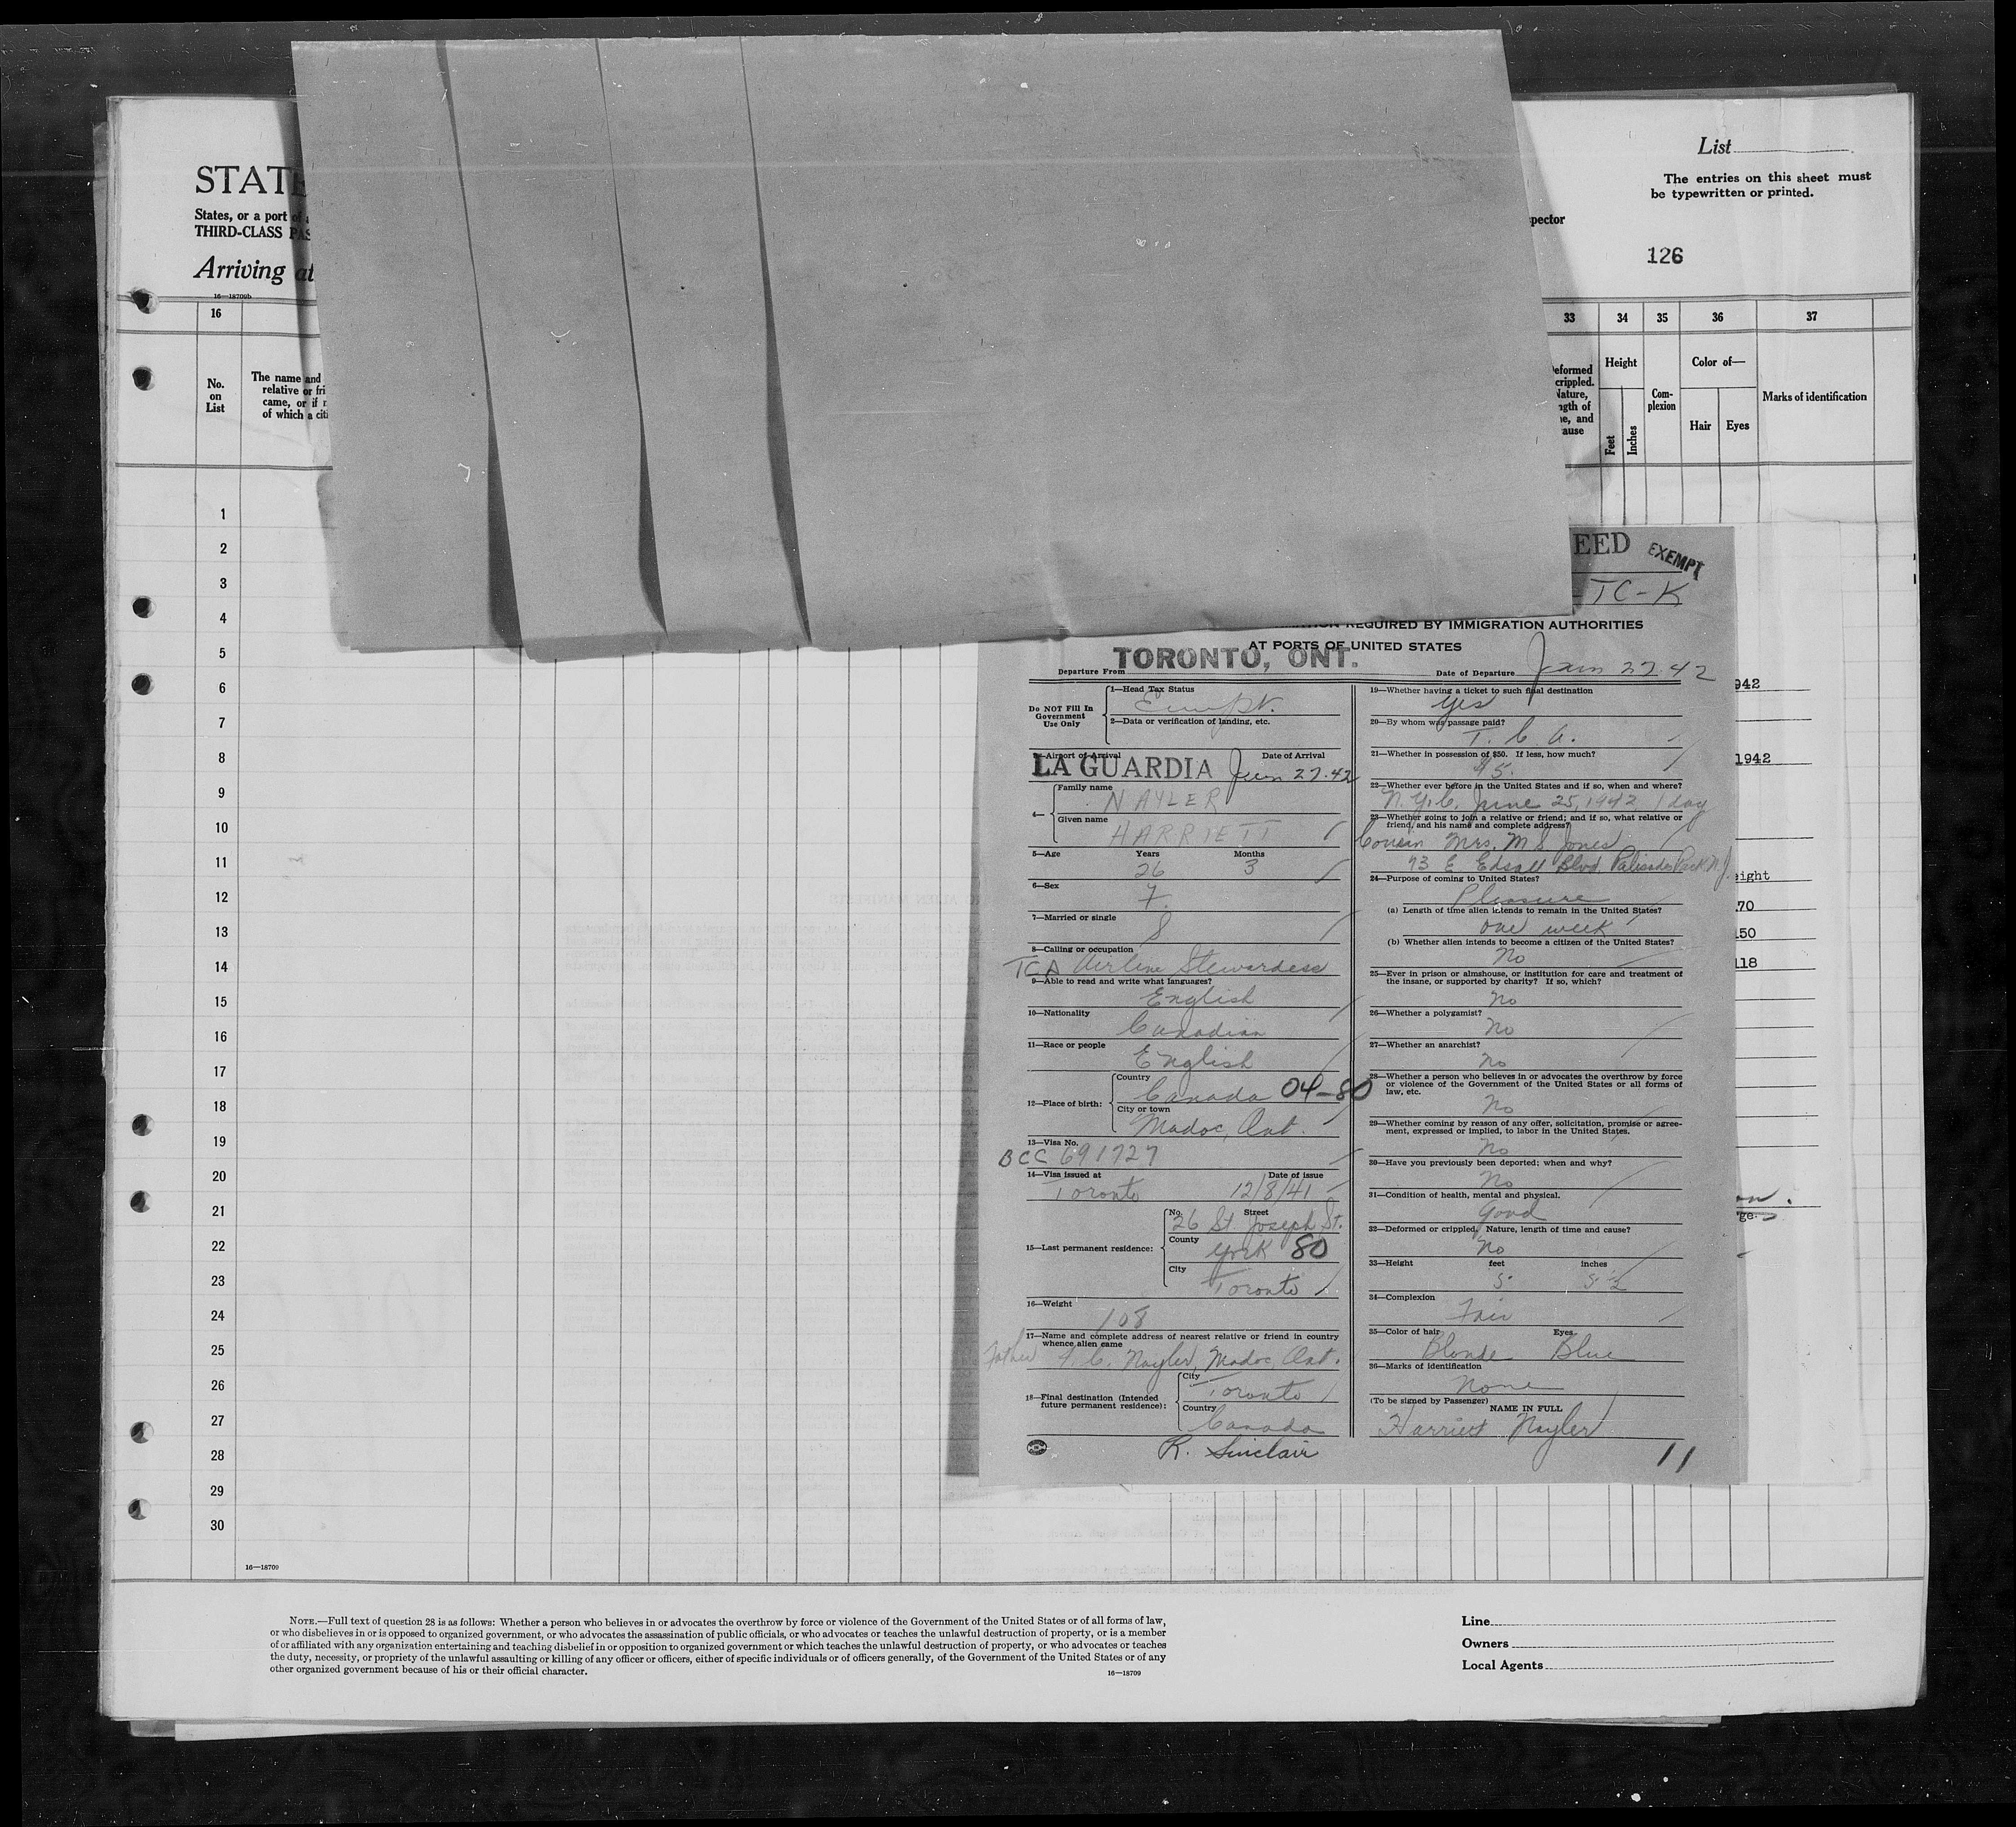 STATE
States, or a port of a
THIRD-CLASS PAS
Arriving at
16—18709b
List
The entries on this sheet must
be typewritten or printed.
pector
126
16
No.
on
List
The name and
relative or fri
came, or if n
of which a citi
33
34
35
36
37
eformed
crippled.
Nature,
ngth of
ne, and
ause
Height
Feet
Inches
Com-
plexion
Color of—
Hair
Eyes
Marks of identification
1
2
3
4
5
6
7
8
9
10
11
12
13
14
15
16
17
18
19
20
21
22
23
24
25
26
27
28
29
30
16—18709
EED
EXEMPT
TC-K
REQUIRED BY IMMIGRATION AUTHORITIES
AT PORTS OF UNITED STATES
Departure From TORONTO, ONT.
Date of Departure Jun 27. 42
Do NOT Fill In
Government
Use Only
1—Head Tax Status
2—Data or verification of landing, etc.
3—Airport of Arrival
Date of Arrival
LA GUARDIA Jun 27. 42
4—
Family name
NAYLER
Given name
HARRIETT
5—Age
Years
Months
26 3
6—Sex
F.
7—Married or single
S
8—Calling or occupation
TCA Airline Stewardess
9—Able to read and write what languages?
English
10—Nationality
Canadian
11—Race or people
English
12—Place of birth:
Country
Canada 04-80
City or town
Madoc, Ont.
13—Visa No.
BCC 691727
14—Visa issued at
Date of issue
Toronto 12/8/41
15—Last permanent residence:
No.
Street
26 St. Joseph St.
County
York 80
City
Toronto
16—Weight
108
17—Name and complete address of nearest relative or friend in country
whence alien came
Father Nayler, Madoc, Ont.
18—Final destination (Intended
future permanent residence):
City
Toronto
Country
Canada
R. Sinclair
19—Whether having a ticket to such final destination
yes
20—By whom was passage paid?
T. C. A.
21—Whether in possession of $50. If less, how much?
22—Whether ever before in the United States and if so, when and where?
N.Y.C. June 25, 1942 1 day
23—Whether going to join a relative or friend; and if so, what relative or
friend, and his name and complete address?
Cousin Mrs. M S Jones
93 E Edsall Blvd. Palisades Park N.J.
24—Purpose of coming to United States?
Pleasure
(a) Length of time alien intends to remain in the United States?
one week
(b) Whether alien intends to become a citizen of the United States?
No
25—Ever in prison or almshouse, or institution for care and treatment of
the insane, or supported by charity? If so, which?
No
26—Whether a polygamist?
No
27—Whether an anarchist?
No
28—Whether a person who believes in or advocates the overthrow by force
or violence of the Government of the United States or all forms of
law, etc.
No
29—Whether coming by reason of any offer, solicitation, promise or agree-
ment, expressed or implied, to labor in the United States.
No
30—Have you previously been deported; when and why?
No
31—Condition of health, mental and physical.
Good
32—Deformed or crippled, Nature, length of time and cause?
No
33—Height
feet
inches
5
34—Complexion
Fair
35—Color of hair
Eyes
Blonde Blue
36—Marks of identification
None
(To be signed by Passenger)
NAME IN FULL
Harriett Nayler
11
942
1942
eight
70
150
118
ge.
NOTE.—Full text of question 28 is as follows: Whether a person who believes in or advocates the overthrow by force or violence of the Government of the United States or of all forms of law,
or who disbelieves in or is opposed to organized government, or who advocates the assassination of public officials, or who advocates or teaches the unlawful destruction of property, or is a member
of or affiliated with any organization entertaining and teaching disbelief in or opposition to organized government or which teaches the unlawful destruction of property, or who advocates or teaches
the duty, necessity, or propriety of the unlawful assaulting or killing of any officer or officers, either of specific individuals or of officers generally, of the Government of the United States or of any
other organized government because of his or their official character.
16—18709
Line
Owners
Local Agents